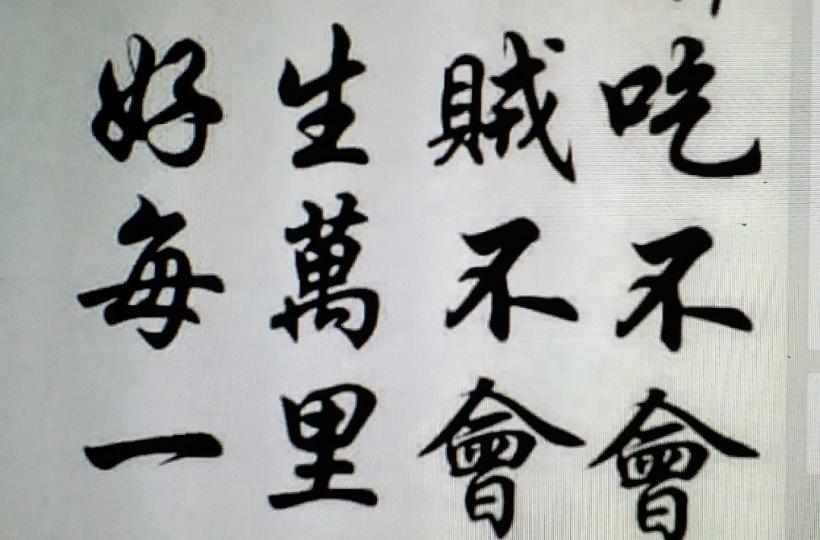 吃不會
賊不會
生萬里
好每一